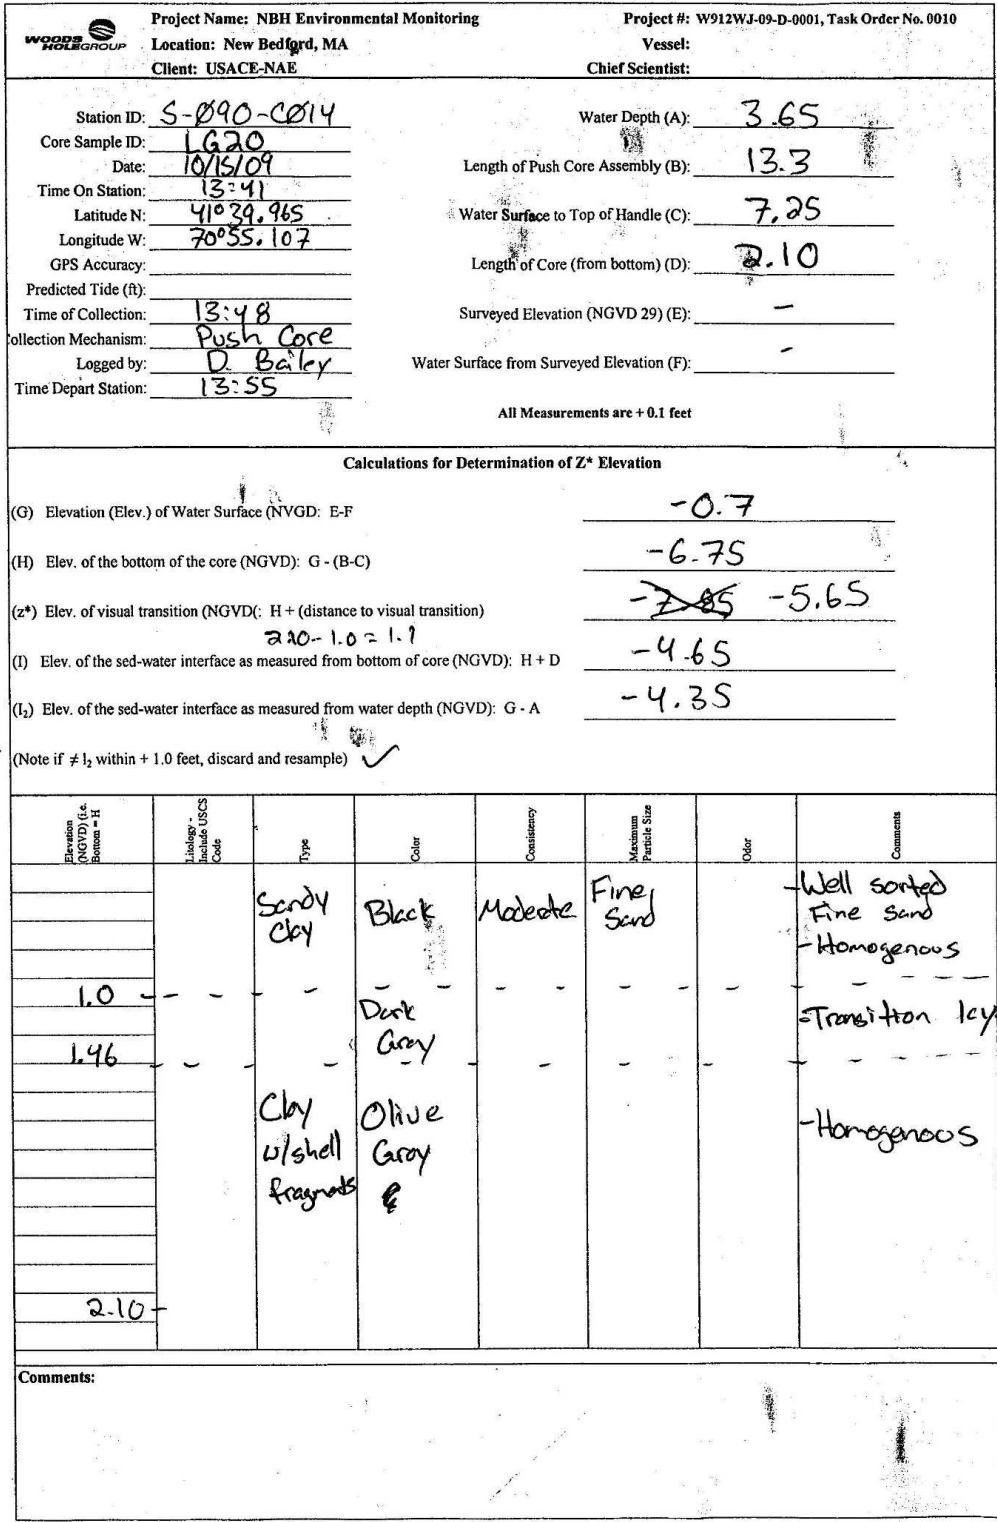 WOODS HOLE GROUP
Project Name: NBH Environmental Monitoring
Location: New Bedford, MA
Client: USACE-NAE
Project #: W912WJ-09-D-0001, Task Order No. 0010
Vessel:
Chief Scientist:
Station ID: S-Ø90-CØ14
Core Sample ID: LG20
Date: 10/15/09
Time On Station: 13:41
Latitude N: 41° 39.965
Longitude W: 70° 55.107
GPS Accuracy:
Predicted Tide (ft):
Time of Collection: 13:48
ollection Mechanism: Push Core
Logged by: D. Bailey
Time Depart Station: 13:55
Water Depth (A): 3.65
Length of Push Core Assembly (B): 13.3
Water Surface to Top of Handle (C): 7.25
Length of Core (from bottom) (D): 2.10
Surveyed Elevation (NGVD 29) (E): -
Water Surface from Surveyed Elevation (F): -
All Measurements are + 0.1 feet
Calculations for Determination of Z* Elevation
(G) Elevation (Elev.) of Water Surface (NVGD: E-F -0.7
(H) Elev. of the bottom of the core (NGVD): G - (B-C) -6.75
(z*) Elev. of visual transition (NGVD(: H + (distance to visual transition) -5.65
2.10 - 1.0 = 1.1
(I) Elev. of the sed-water interface as measured from bottom of core (NGVD): H + D -4.65
(I₂) Elev. of the sed-water interface as measured from water depth (NGVD): G - A -4.35
(Note if ≠ I₂ within + 1.0 feet, discard and resample) ✓
Elevation (NGVD) (i.e. Bottom = H
Litology - Include USCS Code
Type
Color
Consistency
Maximum Particle Size
Odor
Comments
Sandy Clay
Black
Modeate
Fine Sand
-Well sorted
Fine Sand
-Homogenous
1.0
Dark Gray
-Transition
1.46
Clay w/shell fragments
Olive Gray
-Homogenous
2.10
Comments: